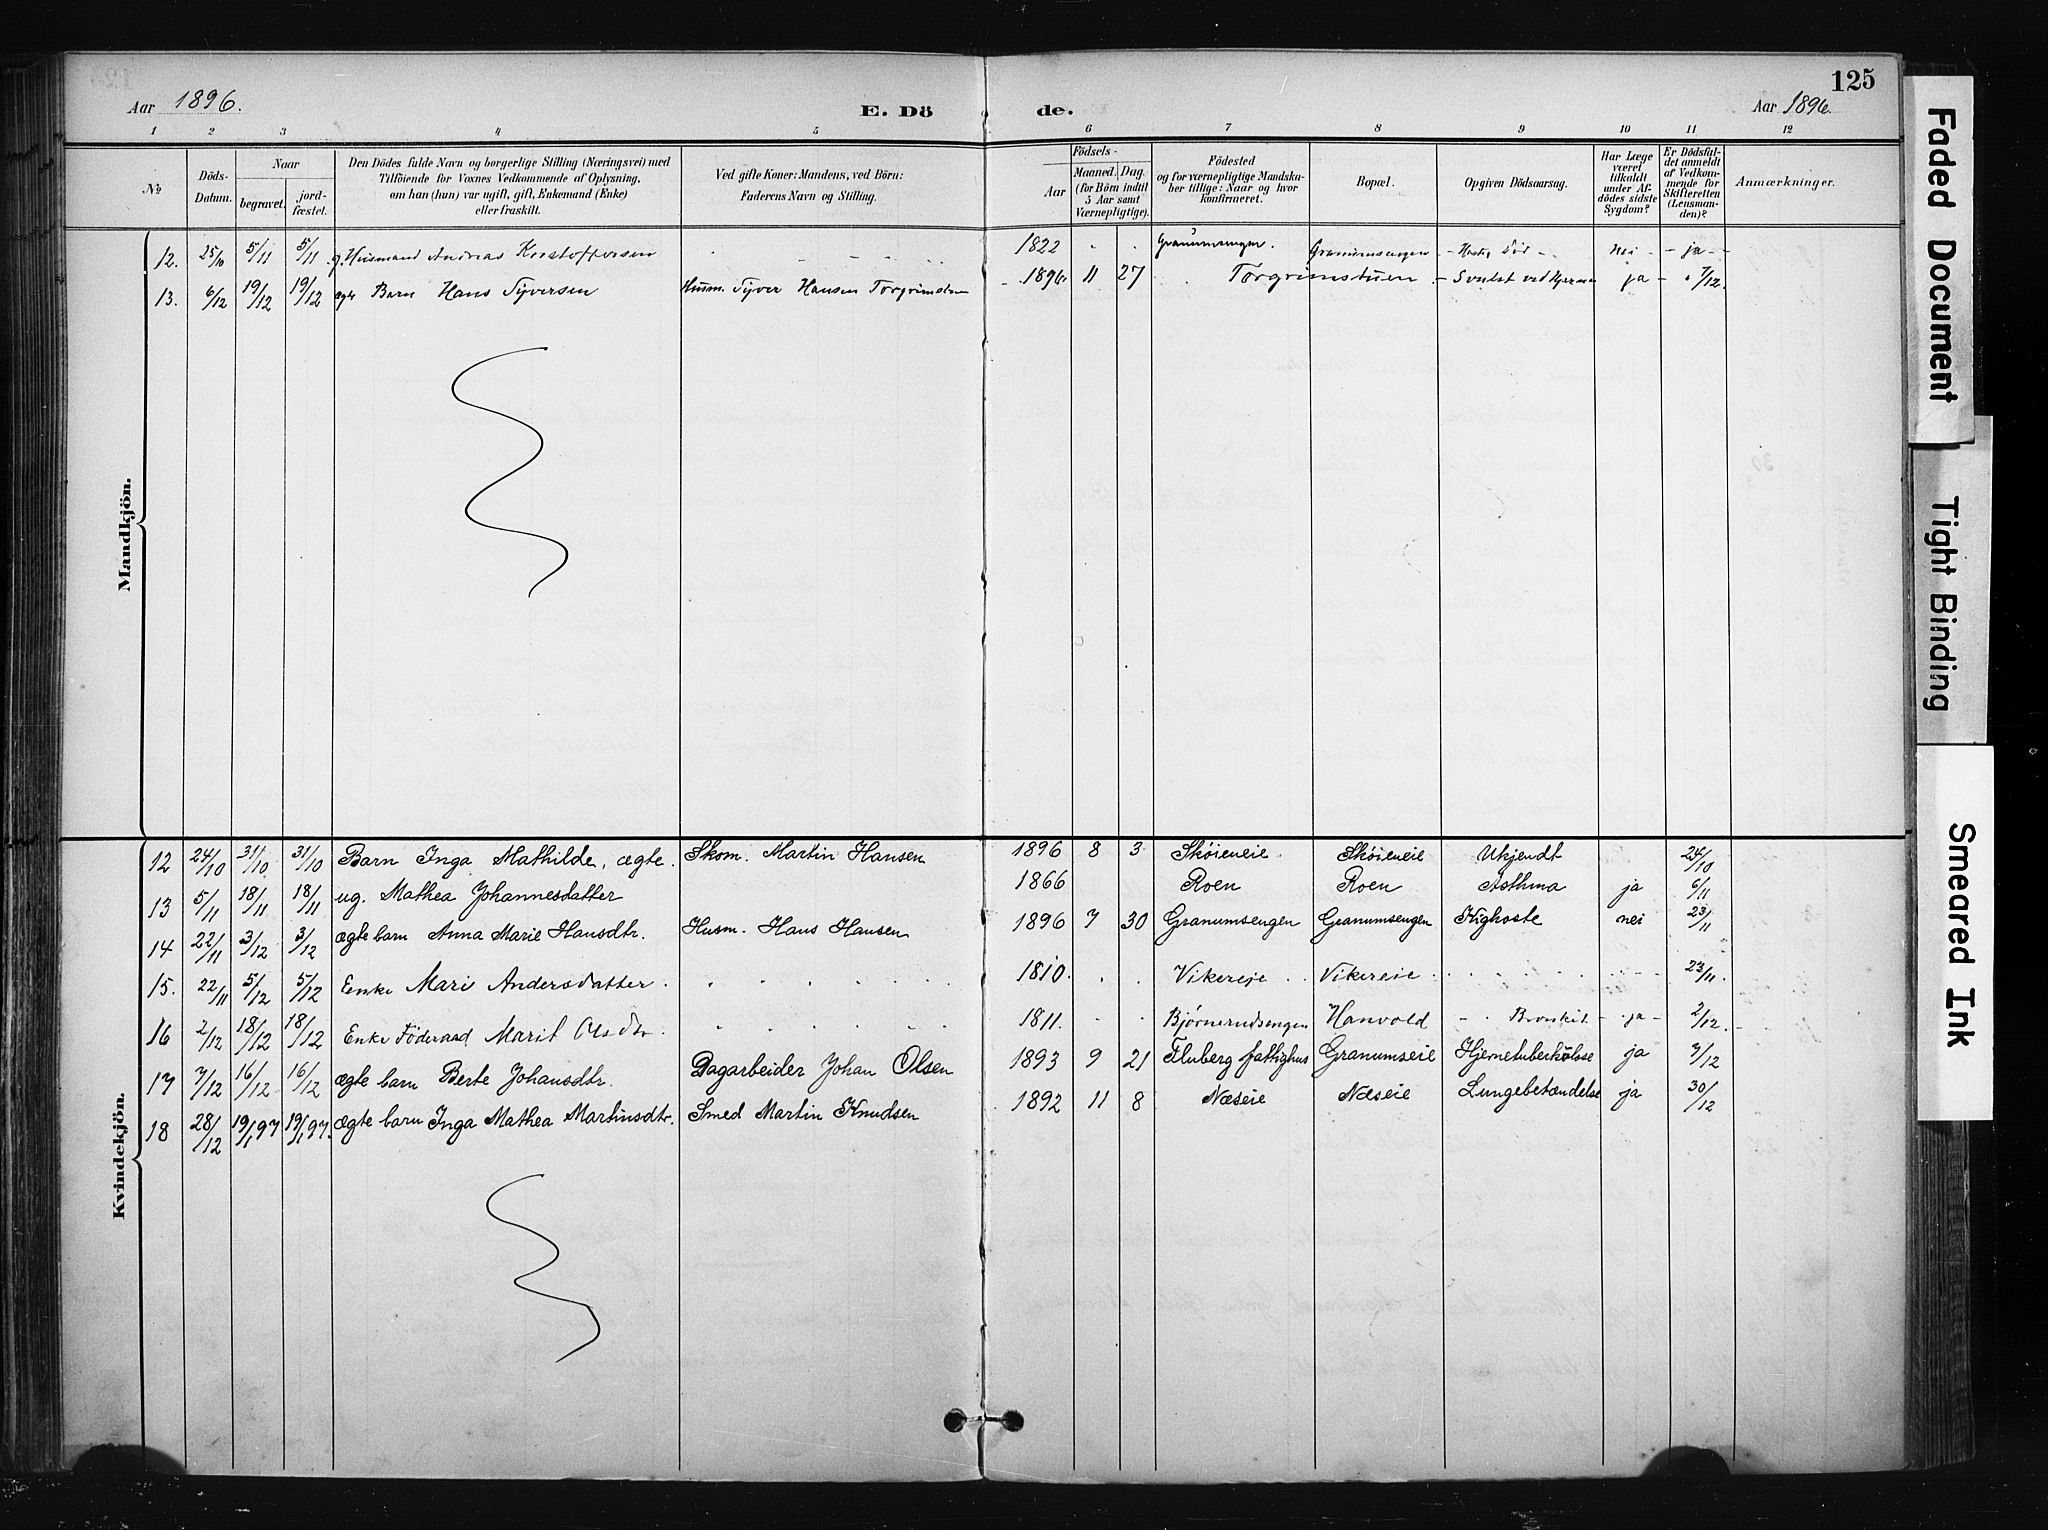 125
Aar 1896. E. Dö de. Aar 1896.
1 2 3 4 5 6 7 8 9 10 11 12
No
Döds-Datum.
Naar
begravet. jord-fæstet.
Den Dödes fulde Navn og borgerlige Stilling (Næringsvei) med
Tilföiende for Voxnes Vedkommende af Oplysning,
om han (hun) var ugift, gift, Enkemand (Enke)
eller fraskilt.
Ved gifte Koner: Mandens, ved Börn:
Faderens Navn og Stilling.
Födsels-
Aar Maaned. Dag.
(for Börn indtil
5 Aar samt
Værnepligtige).
Födested
og for værnepligtige Mandska-
ber tillige: Naar og hvor
konfirmeret.
Bopæl.
Opgiven Dödsaarsag.
Har Læge
været
tilkaldt
under Af-
dödes sidste
Sygdom?
Er Dödsfal-
det anmeldt
af Vedkom-
mende for
Skifteretten
(Lensman-
den)?
Anmærkninger.
Mandkjön.
12. 25/10 5/11 5/11 g. Husmand Andreas Kristoffersen 1822 Granumsengen. Granumsengen Nei - ja -
13. 6/12 19/12 19/12 ægte Barn Hans Syversen Husm. Syver Hansen Torgrimstuen 1896 11 27 Torgrimstuen ja 7/12.
Kvindekjön.
12 24/10 31/10 31/10 Barn Inga Mathilde, ægte. Skom. Martin Hansen 1896 8 3 Skøieneie Skøieneie Ukjendt 24/10
13 5/11 18/11 18/11 ug. Mathea Johannesdatter 1866 Roen Roen Asthma ja 6/11
14 22/11 3/12 3/12 ægte barn Anna Marie Hansdtr. Husm. Hans Hansen 1896 7 30 Granumsengen Granumsengen Kighoste nei 23/11
15. 22/11 5/12 5/12 Enke Mari Andersdatter. 1810. Vikereie Vikereie 23/11.
16 2/12 18/12 18/12 Enke Föderaad Marit Olsdtr. 1811. Bjørnerudsengen Hanvold Bronkit - ja - 2/12.
17 7/12 16/12 16/12 ægte barn Berte Johansdtr. Dagarbeider Johan Olsen 1893 9 21 Fluberg fattighus Granumseie Hjernetuberkulose ja 7/12
18 28/12 19/1 97 19/1 97. ægte barn Inga Mathea Martinsdtr. Smed Martin Knudsen 1892 11 8 Næseie Næseie Lungebetændelse ja 30/12
Faded Document
Tight Binding
Smeared Ink